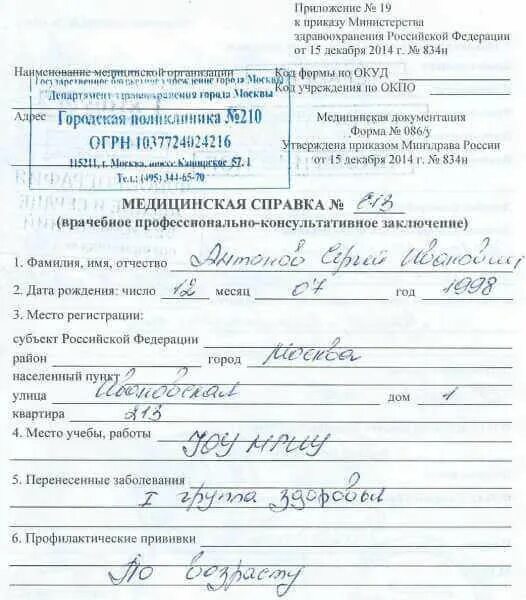 Приложение № 19
к приказу Министерства
здравоохранения Российской Федерации
от 15 декабря 2014 г. № 834н
Наименование медицинской организации
Код формы по ОКУД
Код учреждения по ОКПО
Государственное бюджетное учреждение города Москвы
Департамент здравоохранения города Москвы
Городская поликлиника №210
ОГРН 1037724024216
115211, г. Москва, шоссе Каширское 57, 1
Тел.: (495) 344-65-70
Адрес
Медицинская документация
Форма № 086/у
Утверждена приказом Минздрава России
от 15 декабря 2014 г. № 834н
МЕДИЦИНСКАЯ СПРАВКА № 613
(врачебное профессионально-консультативное заключение)
1. Фамилия, имя, отчество Антонов Сергей Иванович
2. Дата рождения: число 12 месяц 07 год 1998
3. Место регистрации:
субъект Российской Федерации
район город Москва
населенный пункт
улица Ивановская дом 1
квартира 213
4. Место учебы, работы ГОУ
5. Перенесенные заболевания
I группа здоровья
6. Профилактические прививки
По возрасту